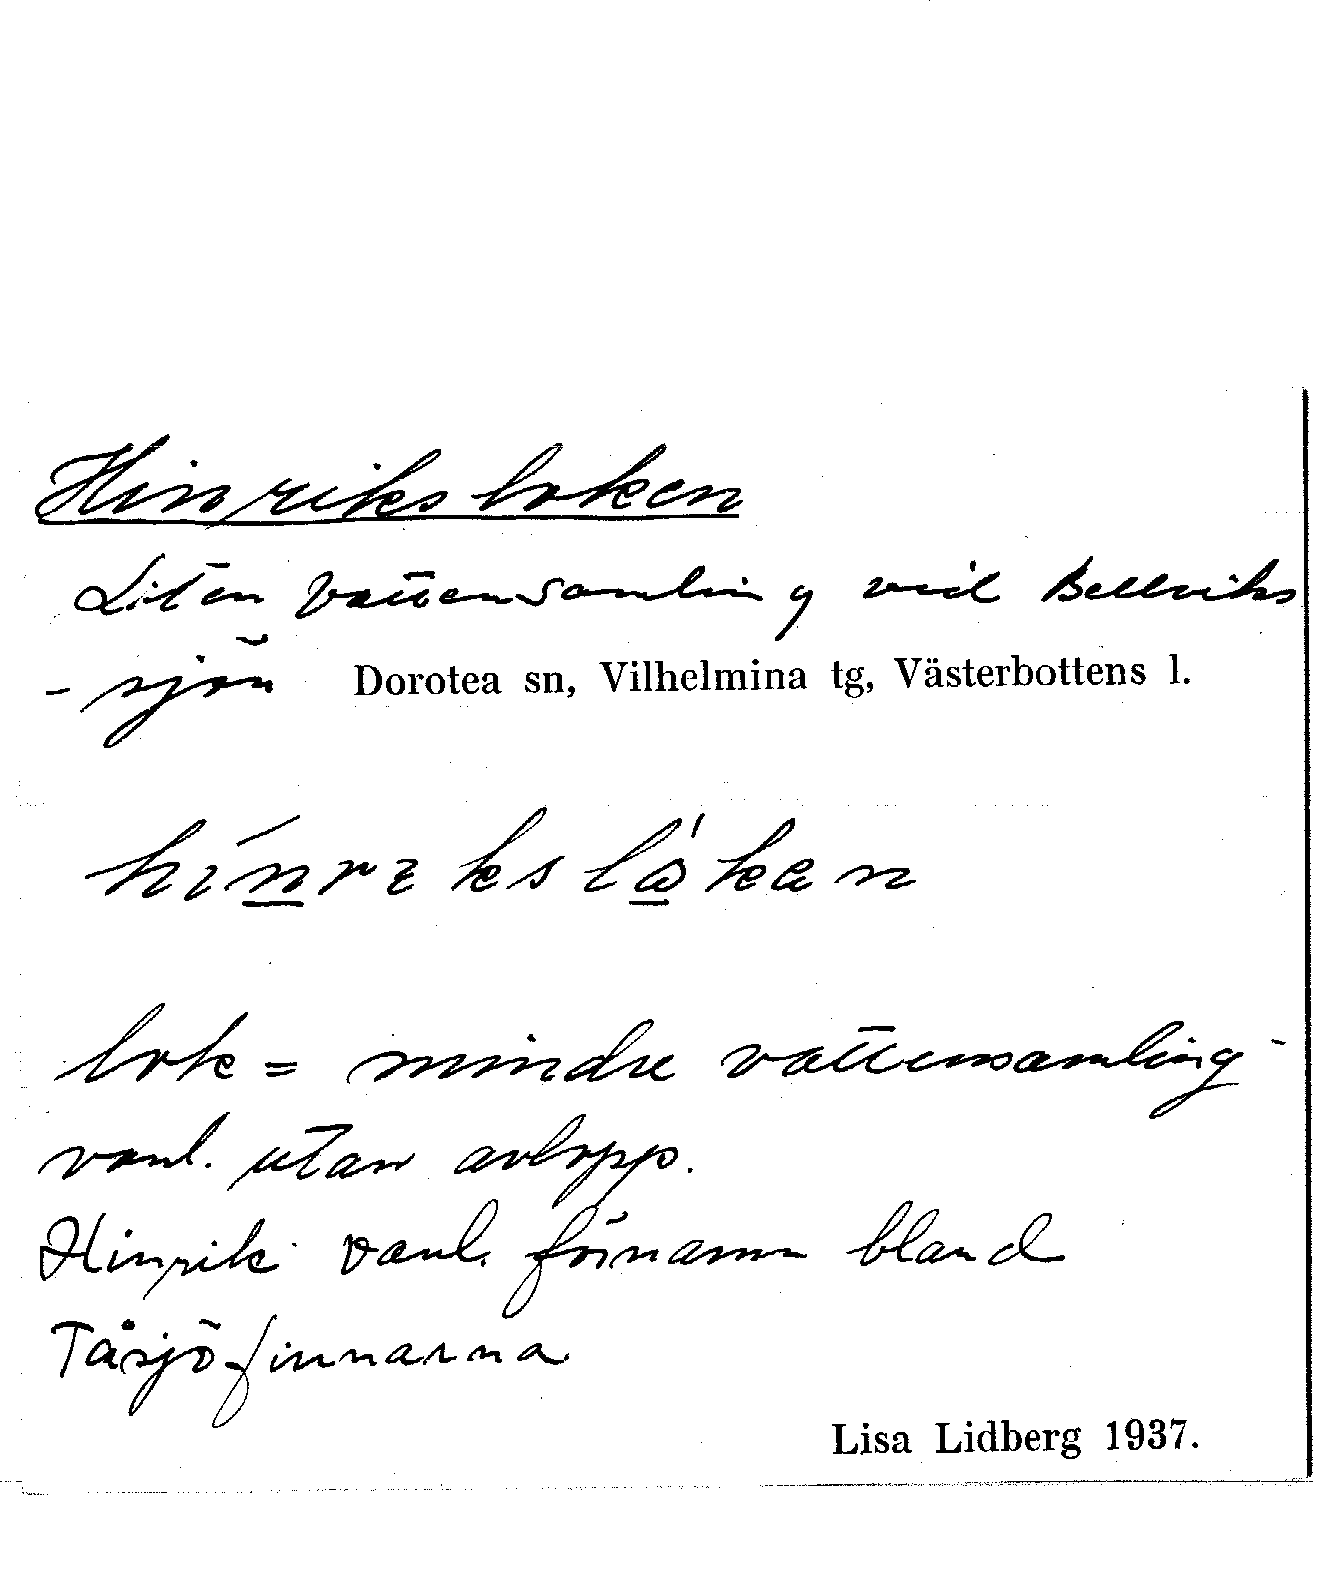 Hinriksloken
Liten vattensamling vid Bellviks
-sjön Dorotea sn, Vilhelmina tg, Västerbottens l.
lok = mindre vattensamling
vanl. utan avlopp.
Hinrik vanl. förnamn bland
Tåsjöfinnarna
Lisa Lidberg 1937.